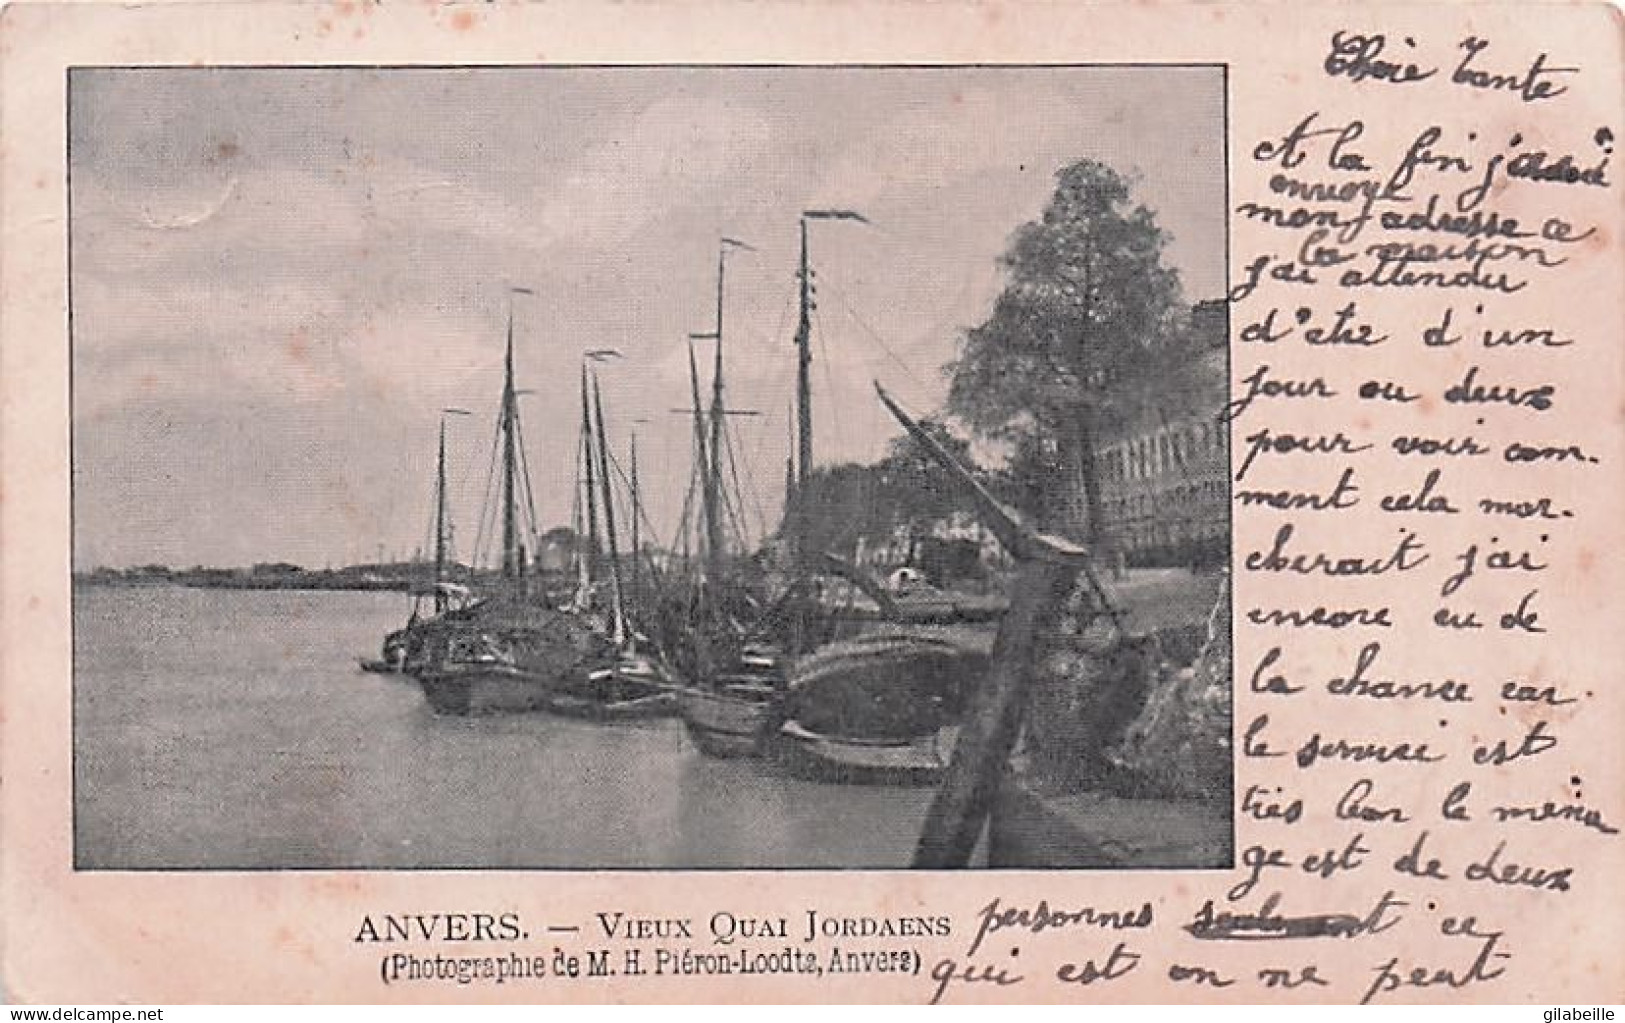 Chère Tante
et la fin j'
envoyé
mon adresse a
la maison
j'ai attendu
d'etre d'un
jour ou deux
pour voir com-
ment cela mar-
cherait j'ai
encore eu de
la chance car
le service est
très bon le ména
ge est de deux
personnes seulement ce
qui est on ne peut
ANVERS. — VIEUX QUAI JORDAENS
(Photographie de M. H. Piéron-Loodts, Anvers)
delcampe.net
gilabeille